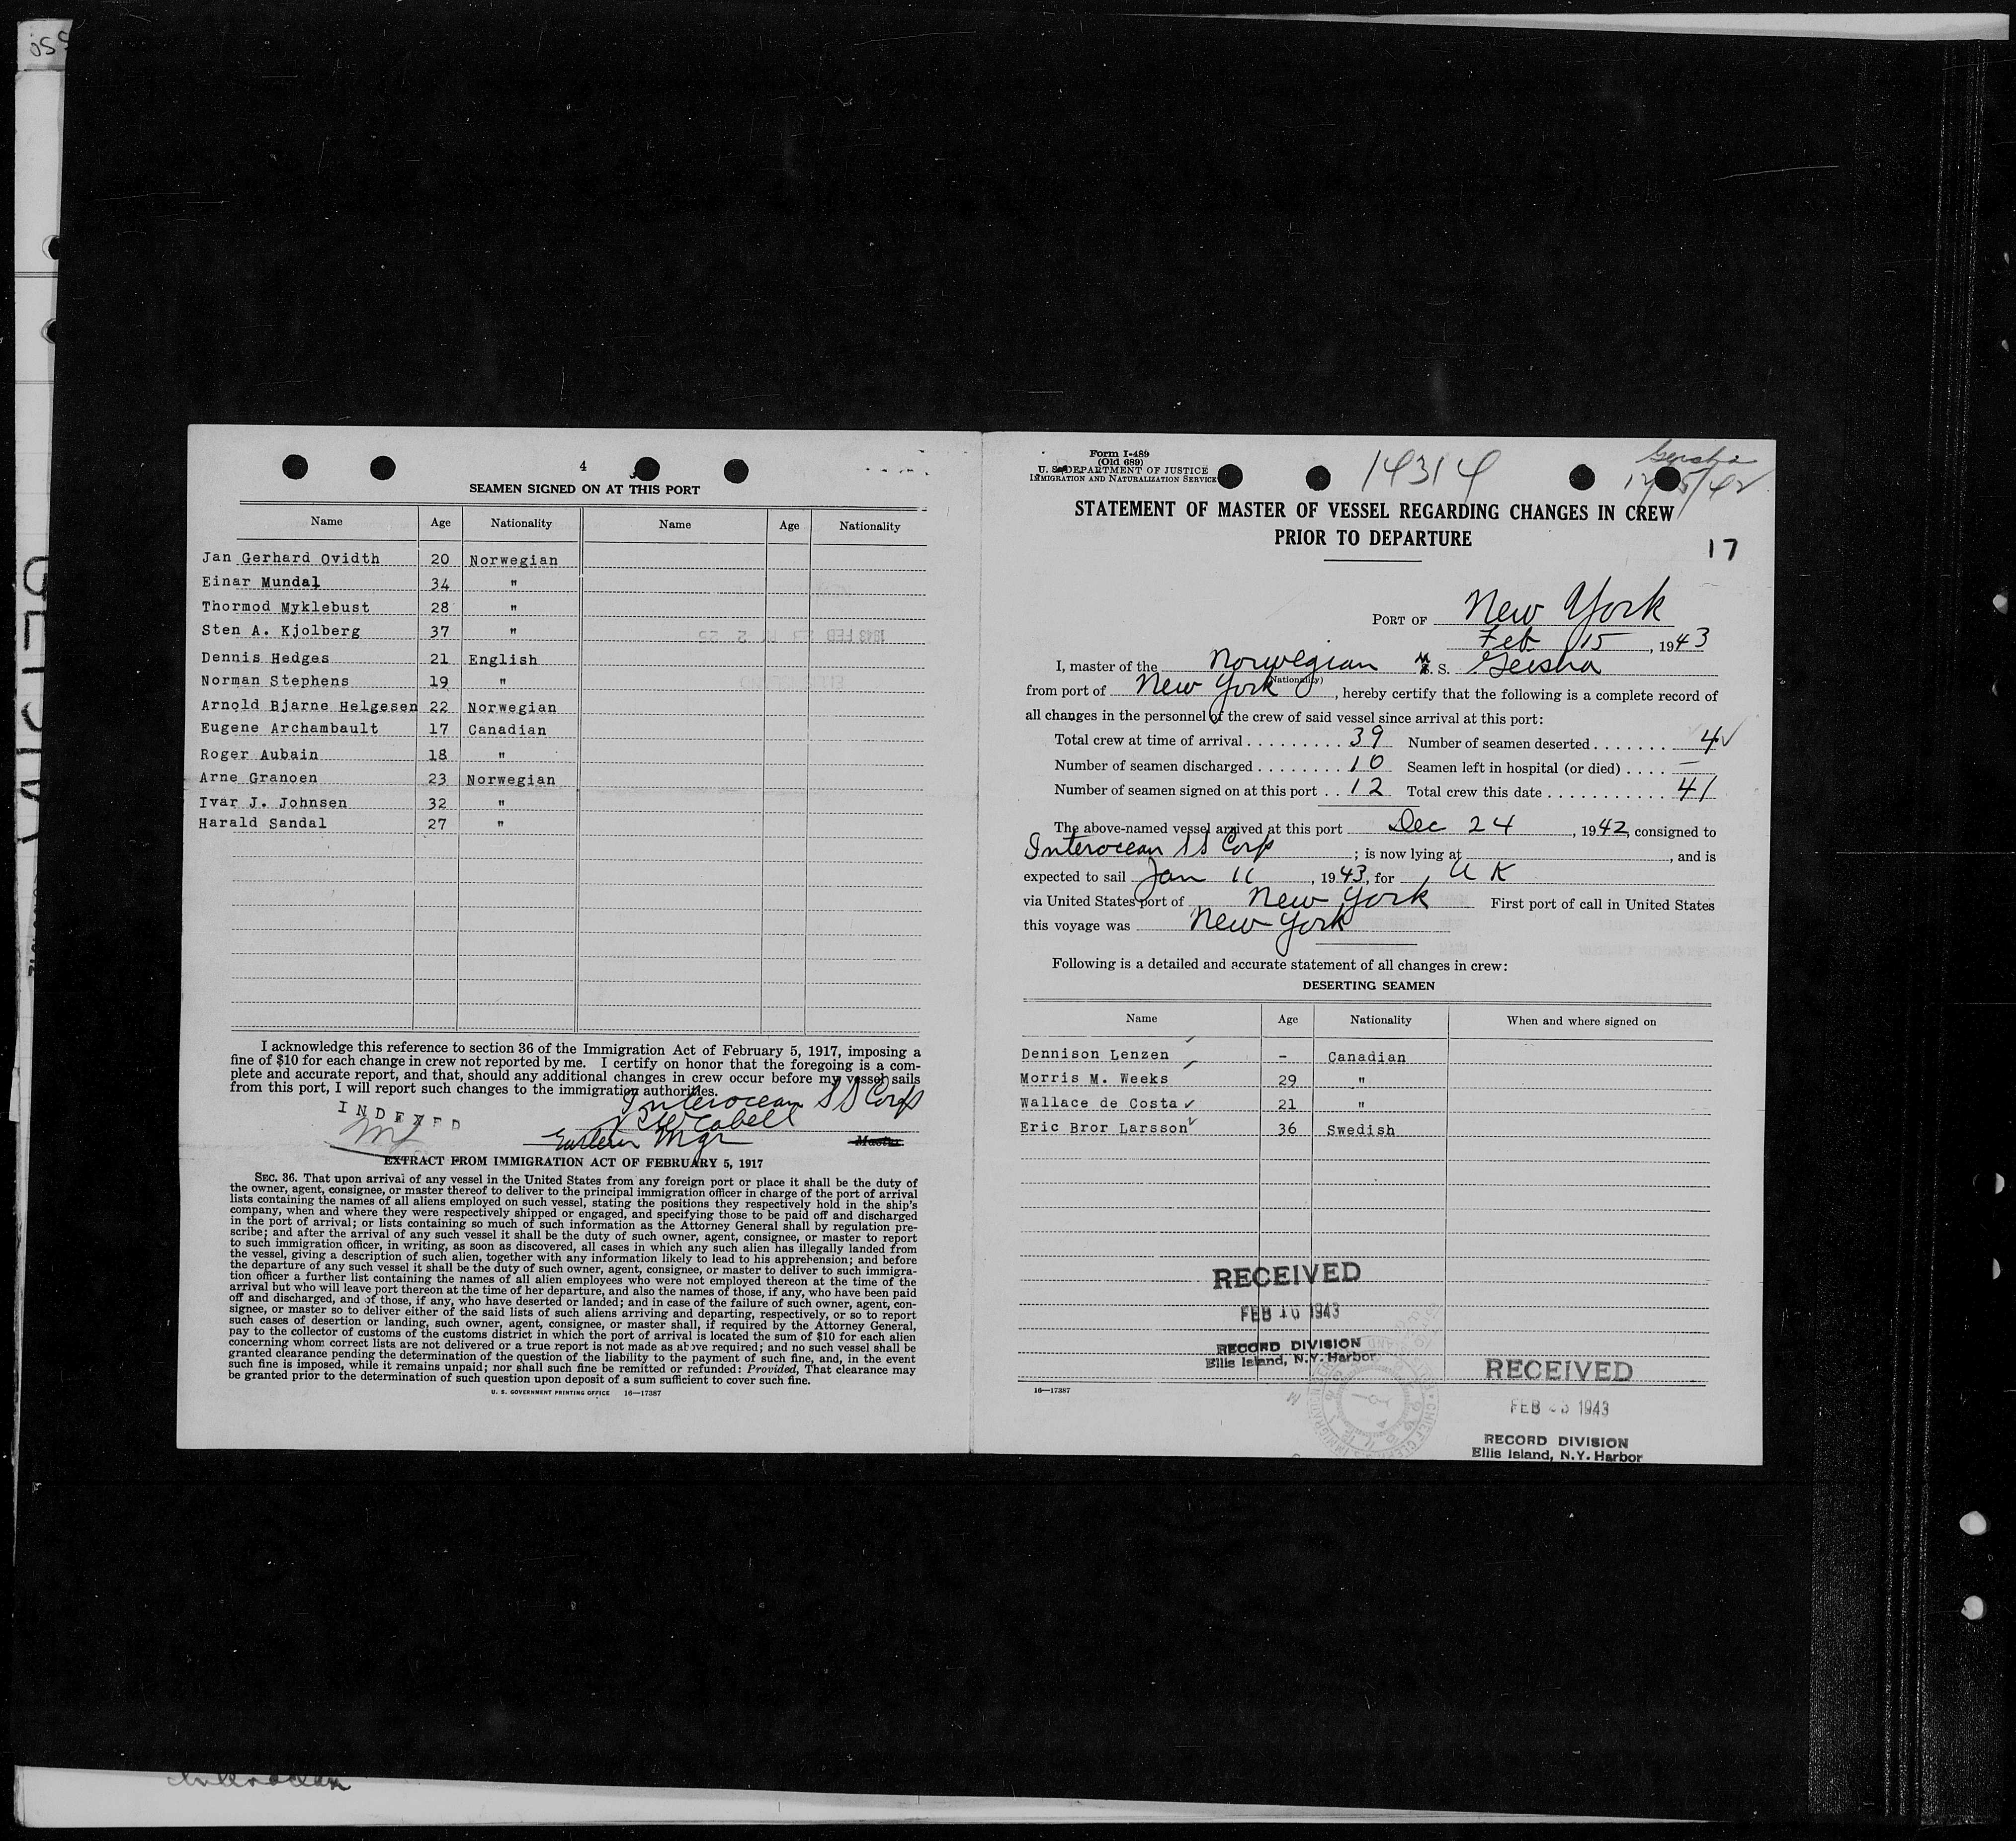 4
SEAMEN SIGNED ON AT THIS PORT
Name Age Nationality Name Age Nationality
Jan Gerhard Ovidth 20 Norwegian
Einar Mundal 34 "
Thormod Myklebust 28 "
Sten A. Kjolberg 37 "
Dennis Hedges 21 English
Norman Stephens 19 "
Arnold Bjarne Helgesen 22 Norwegian
Eugene Archambault 17 Canadian
Roger Aubain 18 "
Arne Granoen 23 Norwegian
Ivar J. Johnsen 32 "
Harald Sandal 27 "
I acknowledge this reference to section 36 of the Immigration Act of February 5, 1917, imposing a
fine of $10 for each change in crew not reported by me. I certify on honor that the foregoing is a com-
plete and accurate report, and that, should any additional changes in crew occur before my vessel sails
from this port, I will report such changes to the immigration authorities.
Interocean S S Corp
INDEXED
Eastern Mgr Master
EXTRACT FROM IMMIGRATION ACT OF FEBRUARY 5, 1917
SEC. 36. That upon arrival of any vessel in the United States from any foreign port or place it shall be the duty of
the owner, agent, consignee, or master thereof to deliver to the principal immigration officer in charge of the port of arrival
lists containing the names of all aliens employed on such vessel, stating the positions they respectively hold in the ship's
company, when and where they were respectively shipped or engaged, and specifying those to be paid off and discharged
in the port of arrival; or lists containing so much of such information as the Attorney General shall by regulation pre-
scribe; and after the arrival of any such vessel it shall be the duty of such owner, agent, consignee, or master to report
to such immigration officer, in writing, as soon as discovered, all cases in which any such alien has illegally landed from
the vessel, giving a description of such alien, together with any information likely to lead to his apprehension; and before
the departure of any such vessel it shall be the duty of such owner, agent, consignee, or master to deliver to such immigra-
tion officer a further list containing the names of all alien employees who were not employed thereon at the time of the
arrival but who will leave port thereon at the time of her departure, and also the names of those, if any, who have been paid
off and discharged, and of those, if any, who have deserted or landed; and in case of the failure of such owner, agent, con-
signee, or master so to deliver either of the said lists of such aliens arriving and departing, respectively, or so to report
such cases of desertion or landing, such owner, agent, consignee, or master shall, if required by the Attorney General,
pay to the collector of customs of the customs district in which the port of arrival is located the sum of $10 for each alien
concerning whom correct lists are not delivered or a true report is not made as above required; and no such vessel shall be
granted clearance pending the determination of the question of the liability to the payment of such fine, and, in the event
such fine is imposed, while it remains unpaid; nor shall such fine be remitted or refunded: Provided, That clearance may
be granted prior to the determination of such question upon deposit of a sum sufficient to cover such fine.
U. S. GOVERNMENT PRINTING OFFICE 16—17387
Form I-489
(Old 689)
U. S. DEPARTMENT OF JUSTICE
IMMIGRATION AND NATURALIZATION SERVICE
14314
Geisha
STATEMENT OF MASTER OF VESSEL REGARDING CHANGES IN CREW
PRIOR TO DEPARTURE
17
PORT OF New York
Feb 15, 1943
I, master of the Norwegian M. S. Geisha
(Nationality)
from port of New York, hereby certify that the following is a complete record of
all changes in the personnel of the crew of said vessel since arrival at this port:
Total crew at time of arrival . . . . . . . . . 39 Number of seamen deserted . . . . . . . 4 ✓
Number of seamen discharged . . . . . . . . 10 Seamen left in hospital (or died) . . . . —
Number of seamen signed on at this port . . 12 Total crew this date . . . . . . . . . . . 41
The above-named vessel arrived at this port Dec 24, 1942, consigned to
Interocean S S Corp; is now lying at , and is
expected to sail Jan 11, 1943, for U K
via United States port of New York First port of call in United States
this voyage was New York
Following is a detailed and accurate statement of all changes in crew:
DESERTING SEAMEN
Name Age Nationality When and where signed on
Dennison Lenzen - Canadian
Morris M. Weeks 29 "
Wallace de Costa ✓ 21 "
Eric Bror Larsson ✓ 36 Swedish
RECEIVED
FEB 10 1943
RECORD DIVISION
Ellis Island, N.Y. Harbor
16—17387
RECEIVED
FEB 1943
RECORD DIVISION
Ellis Island, N.Y. Harbor